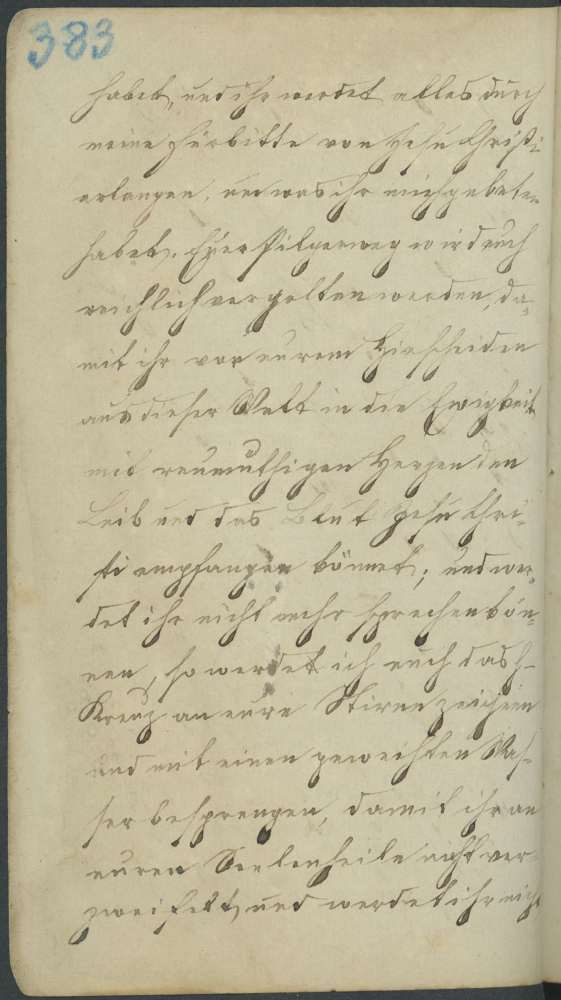 383
habet, und ihr werdet alles durch
meine Fürbitte von Jesu Christi
erlangen, um was ihr mich gebeten
habet. Euer Pilgerweg wird euch
reichlich vergolten werden, da=
mit ihr vor eurem Hinscheiden
aus dieser Welt in die Ewigkeit
mit reumüthigen Herzen den
Leib und das Blut Jesu Chri-
sti empfangen könnet; und wer=
det ihr nicht mehr sprechen kön=
nen, so werdet ich euch das h-
Kreuz an eure Stirne zeichein
und mit einen geweihten Was-
ser besprengen, damit ihr an
euren Seelenheile nicht ver-
zweifelt, und werdet ihr nicht